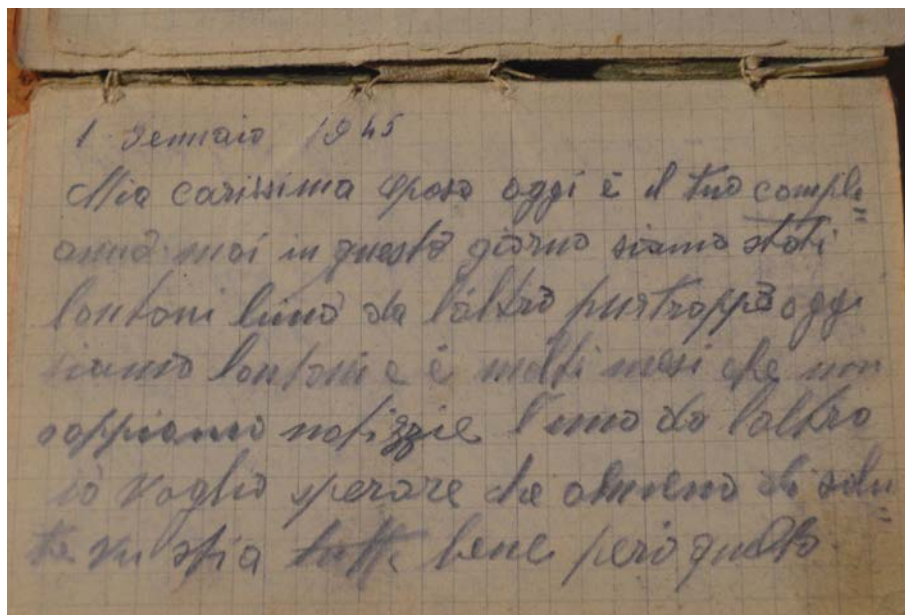 1 Gennaio 1945
Mia carissima sposa oggi è il tuo comple=
anno mai in questo giorno siamo stati
lontani l'uno da l'altro purtroppo oggi
siamo lontani e è molti mesi che non
sappiamo notizzie l'uno da l'altro
io voglio sperare che almeno di salu=
te stia tutti bene però questo